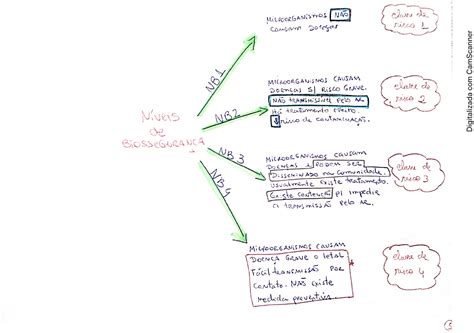 Níveis
de
BIOSSEGURANÇA
NB1
MICROORGANISMOS NÃO
CAUSAM DOENÇAS
Classe de
risco 1
NB2
MICROORGANISMOS CAUSAM
DOENÇAS S/ RISCO GRAVE.
NÃO TRANSMISSÍVEL PELO AR
Há tratamento efetivo.
↓ risco de contaminação.
Classe de
risco 2
NB3
MICROORGANISMOS CAUSAM
DOENÇAS e PODEM SER
DISSEMINADO na comunidade.
Usualmente existe tratamento.
Existe contenção p/ impedir
a transmissão pelo ar.
Classe de
risco 3
NB4
MICROORGANISMOS CAUSAM
DOENÇA GRAVE o letal.
Fácil transmissão por
contato. NÃO existe
medida preventiva.
Classe de
risco 4
Digitalizada com CamScanner